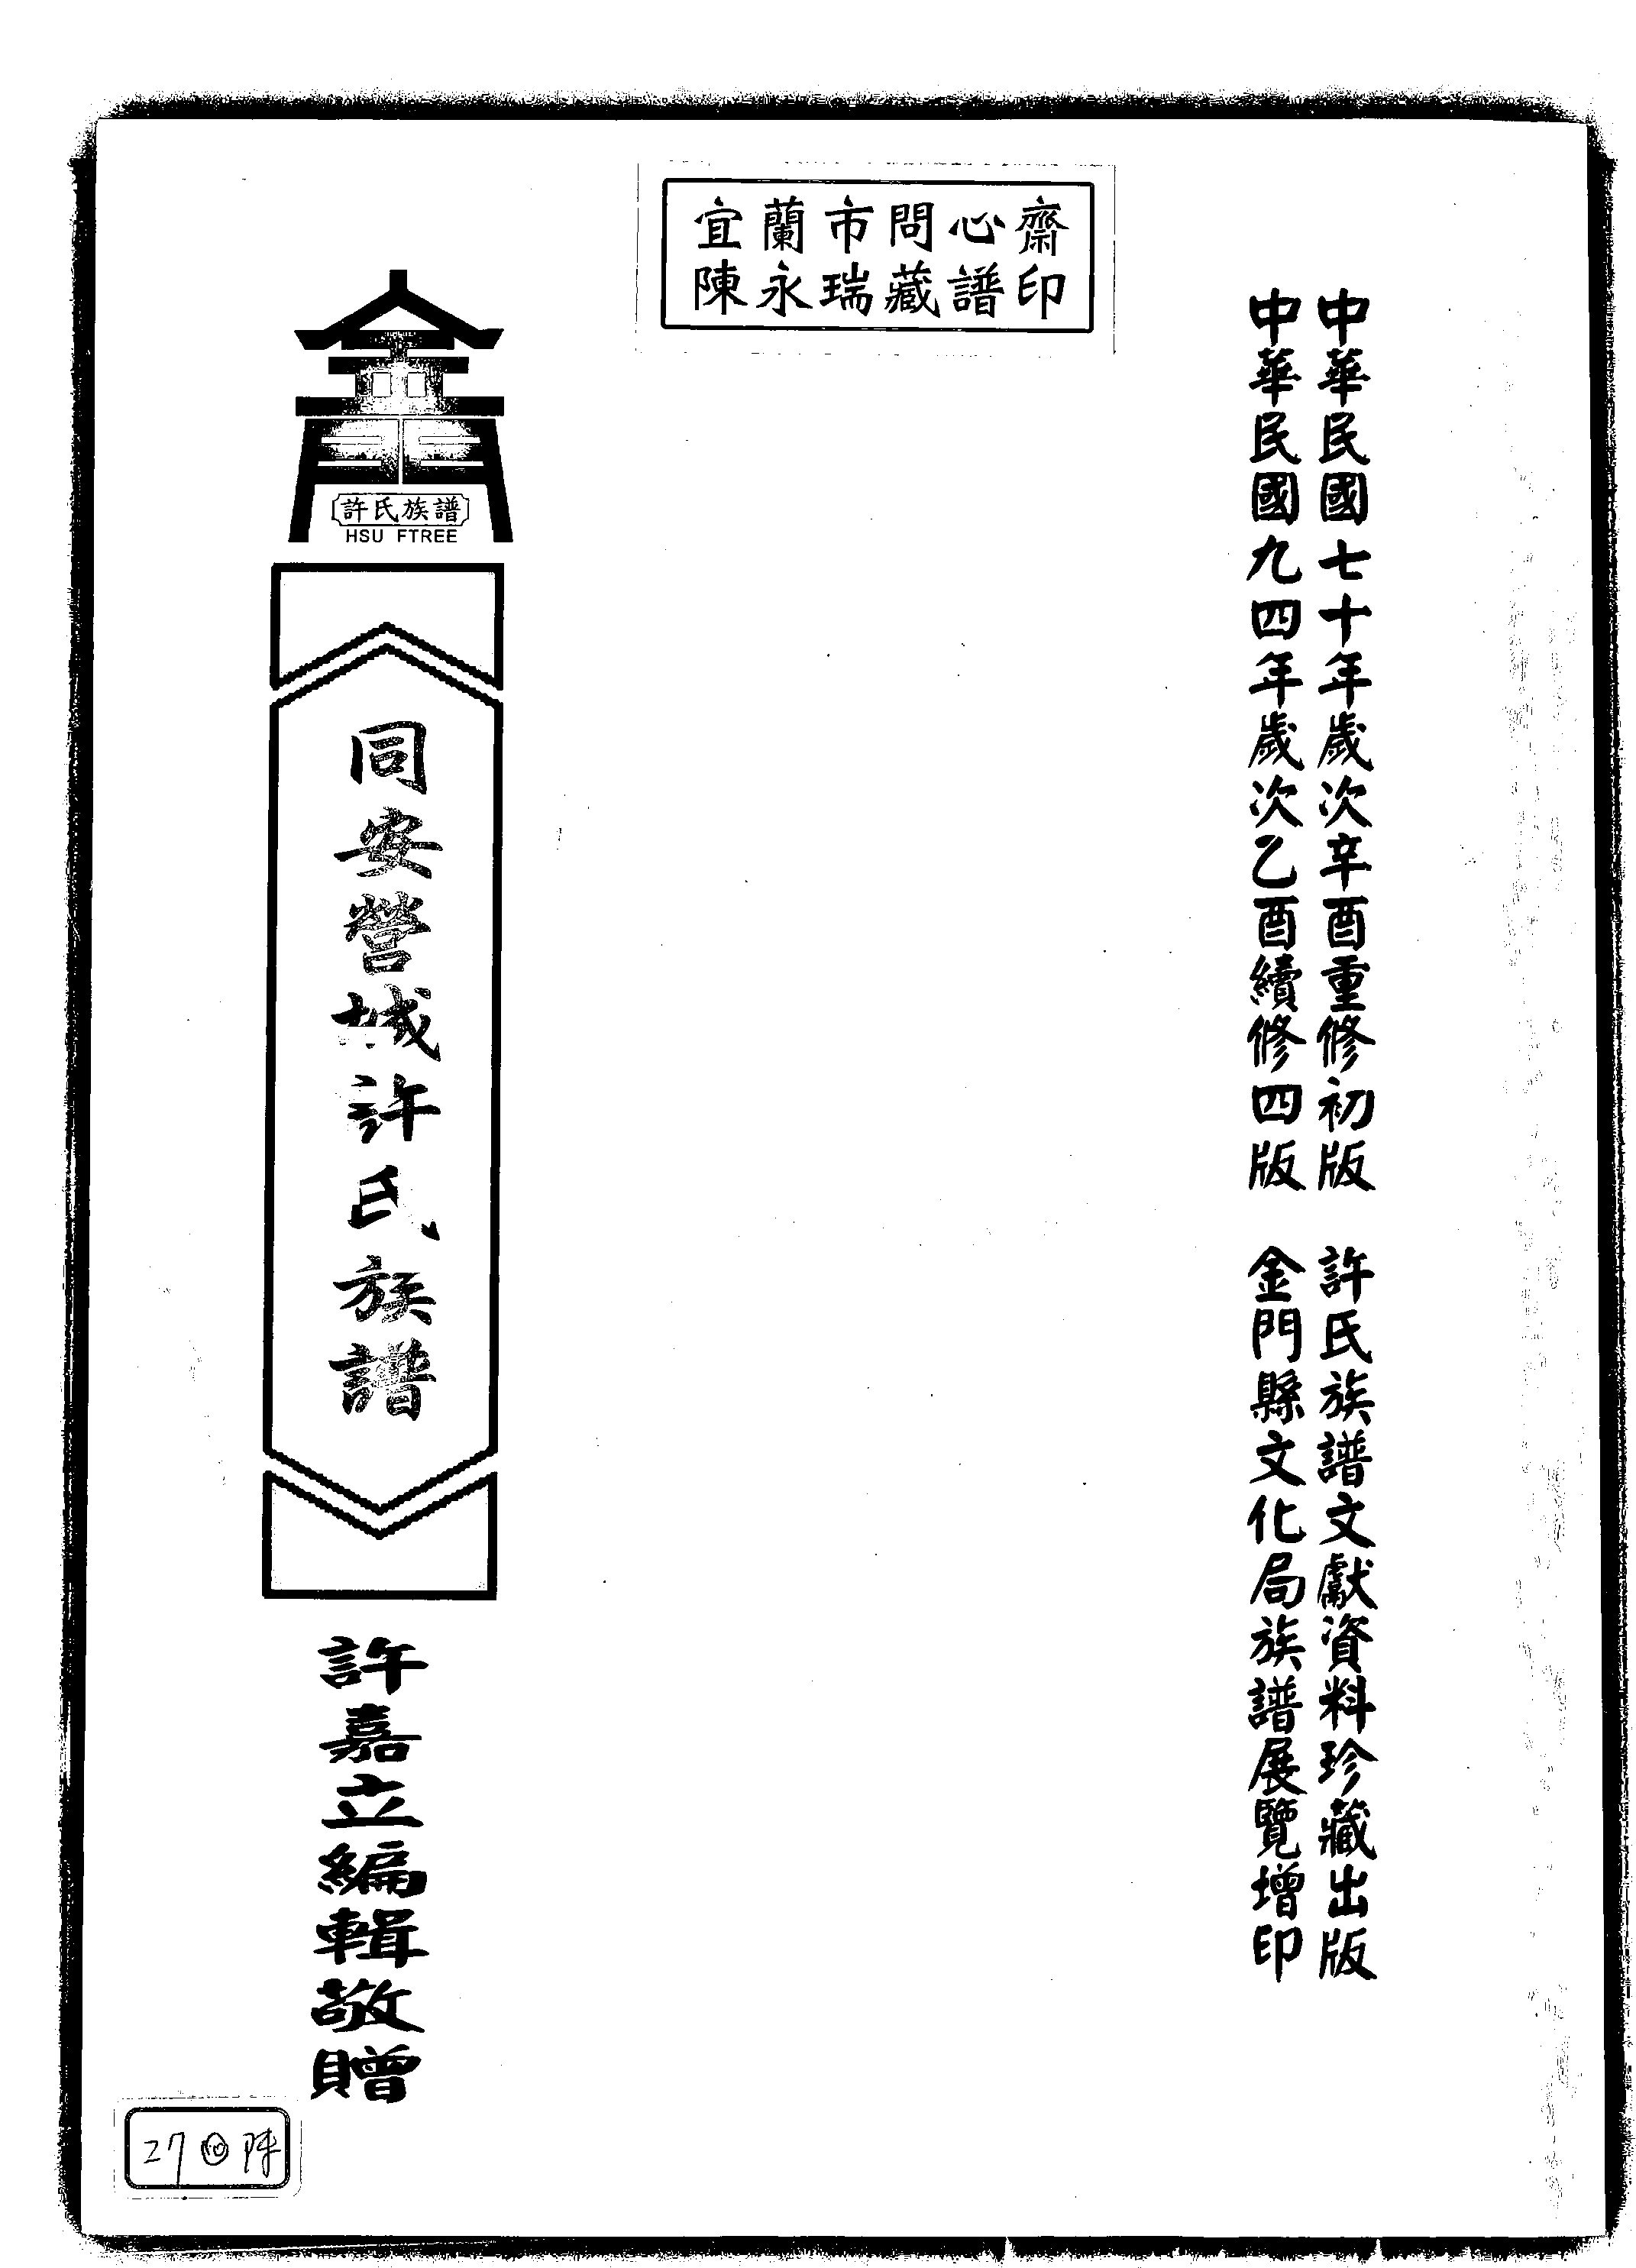 宜蘭市問心齋
陳永瑞藏譜印
中華民國七十年歲次辛酉重修初版 許氏族譜文獻資料珍藏出版
中華民國九四年歲次乙酉續修四版 金門縣文化局族譜展覽增印
許氏族譜
HSU FTREE
同安營城許氏族譜
許嘉立編輯敬贈
27